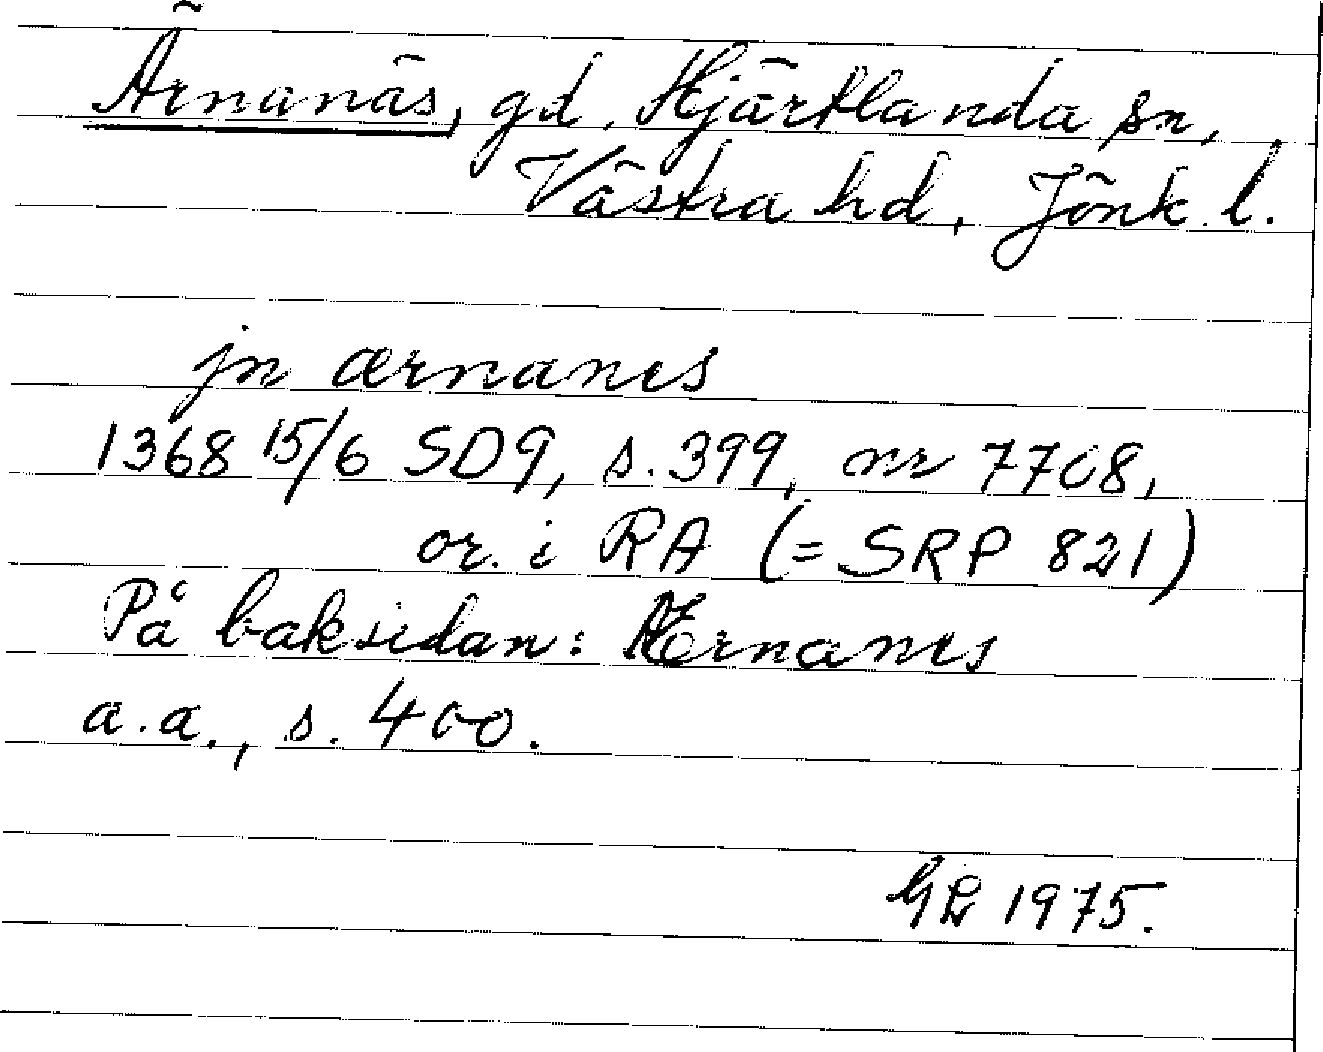 Ärnanäs, gd, Hjärtlanda sn,
Västra hd, Jönk. l.
jn ærnanes
1368 15/6 SD9, s. 399, nr 7708,
or. i RA (= SRP 821)
På baksidan: Ærnanes
a.a., s. 400.
1975.